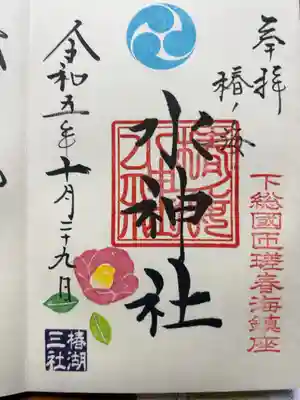 奉拝
椿ノ海
下総國匝瑳春海鎮座
水神社
令和五年十月二十九日
椿湖
三社